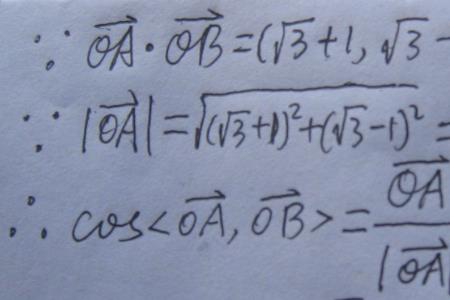 ∵ \overrightarrow{OA}·\overrightarrow{OB}=(√3+1, √3-
∵ |\overrightarrow{OA}|=√((√3+1)²+(√3-1)²) =
∴ cos<\overrightarrow{OA}, \overrightarrow{OB}>=\frac{\overrightarrow{OA}}{|\overrightarrow{OA}|}